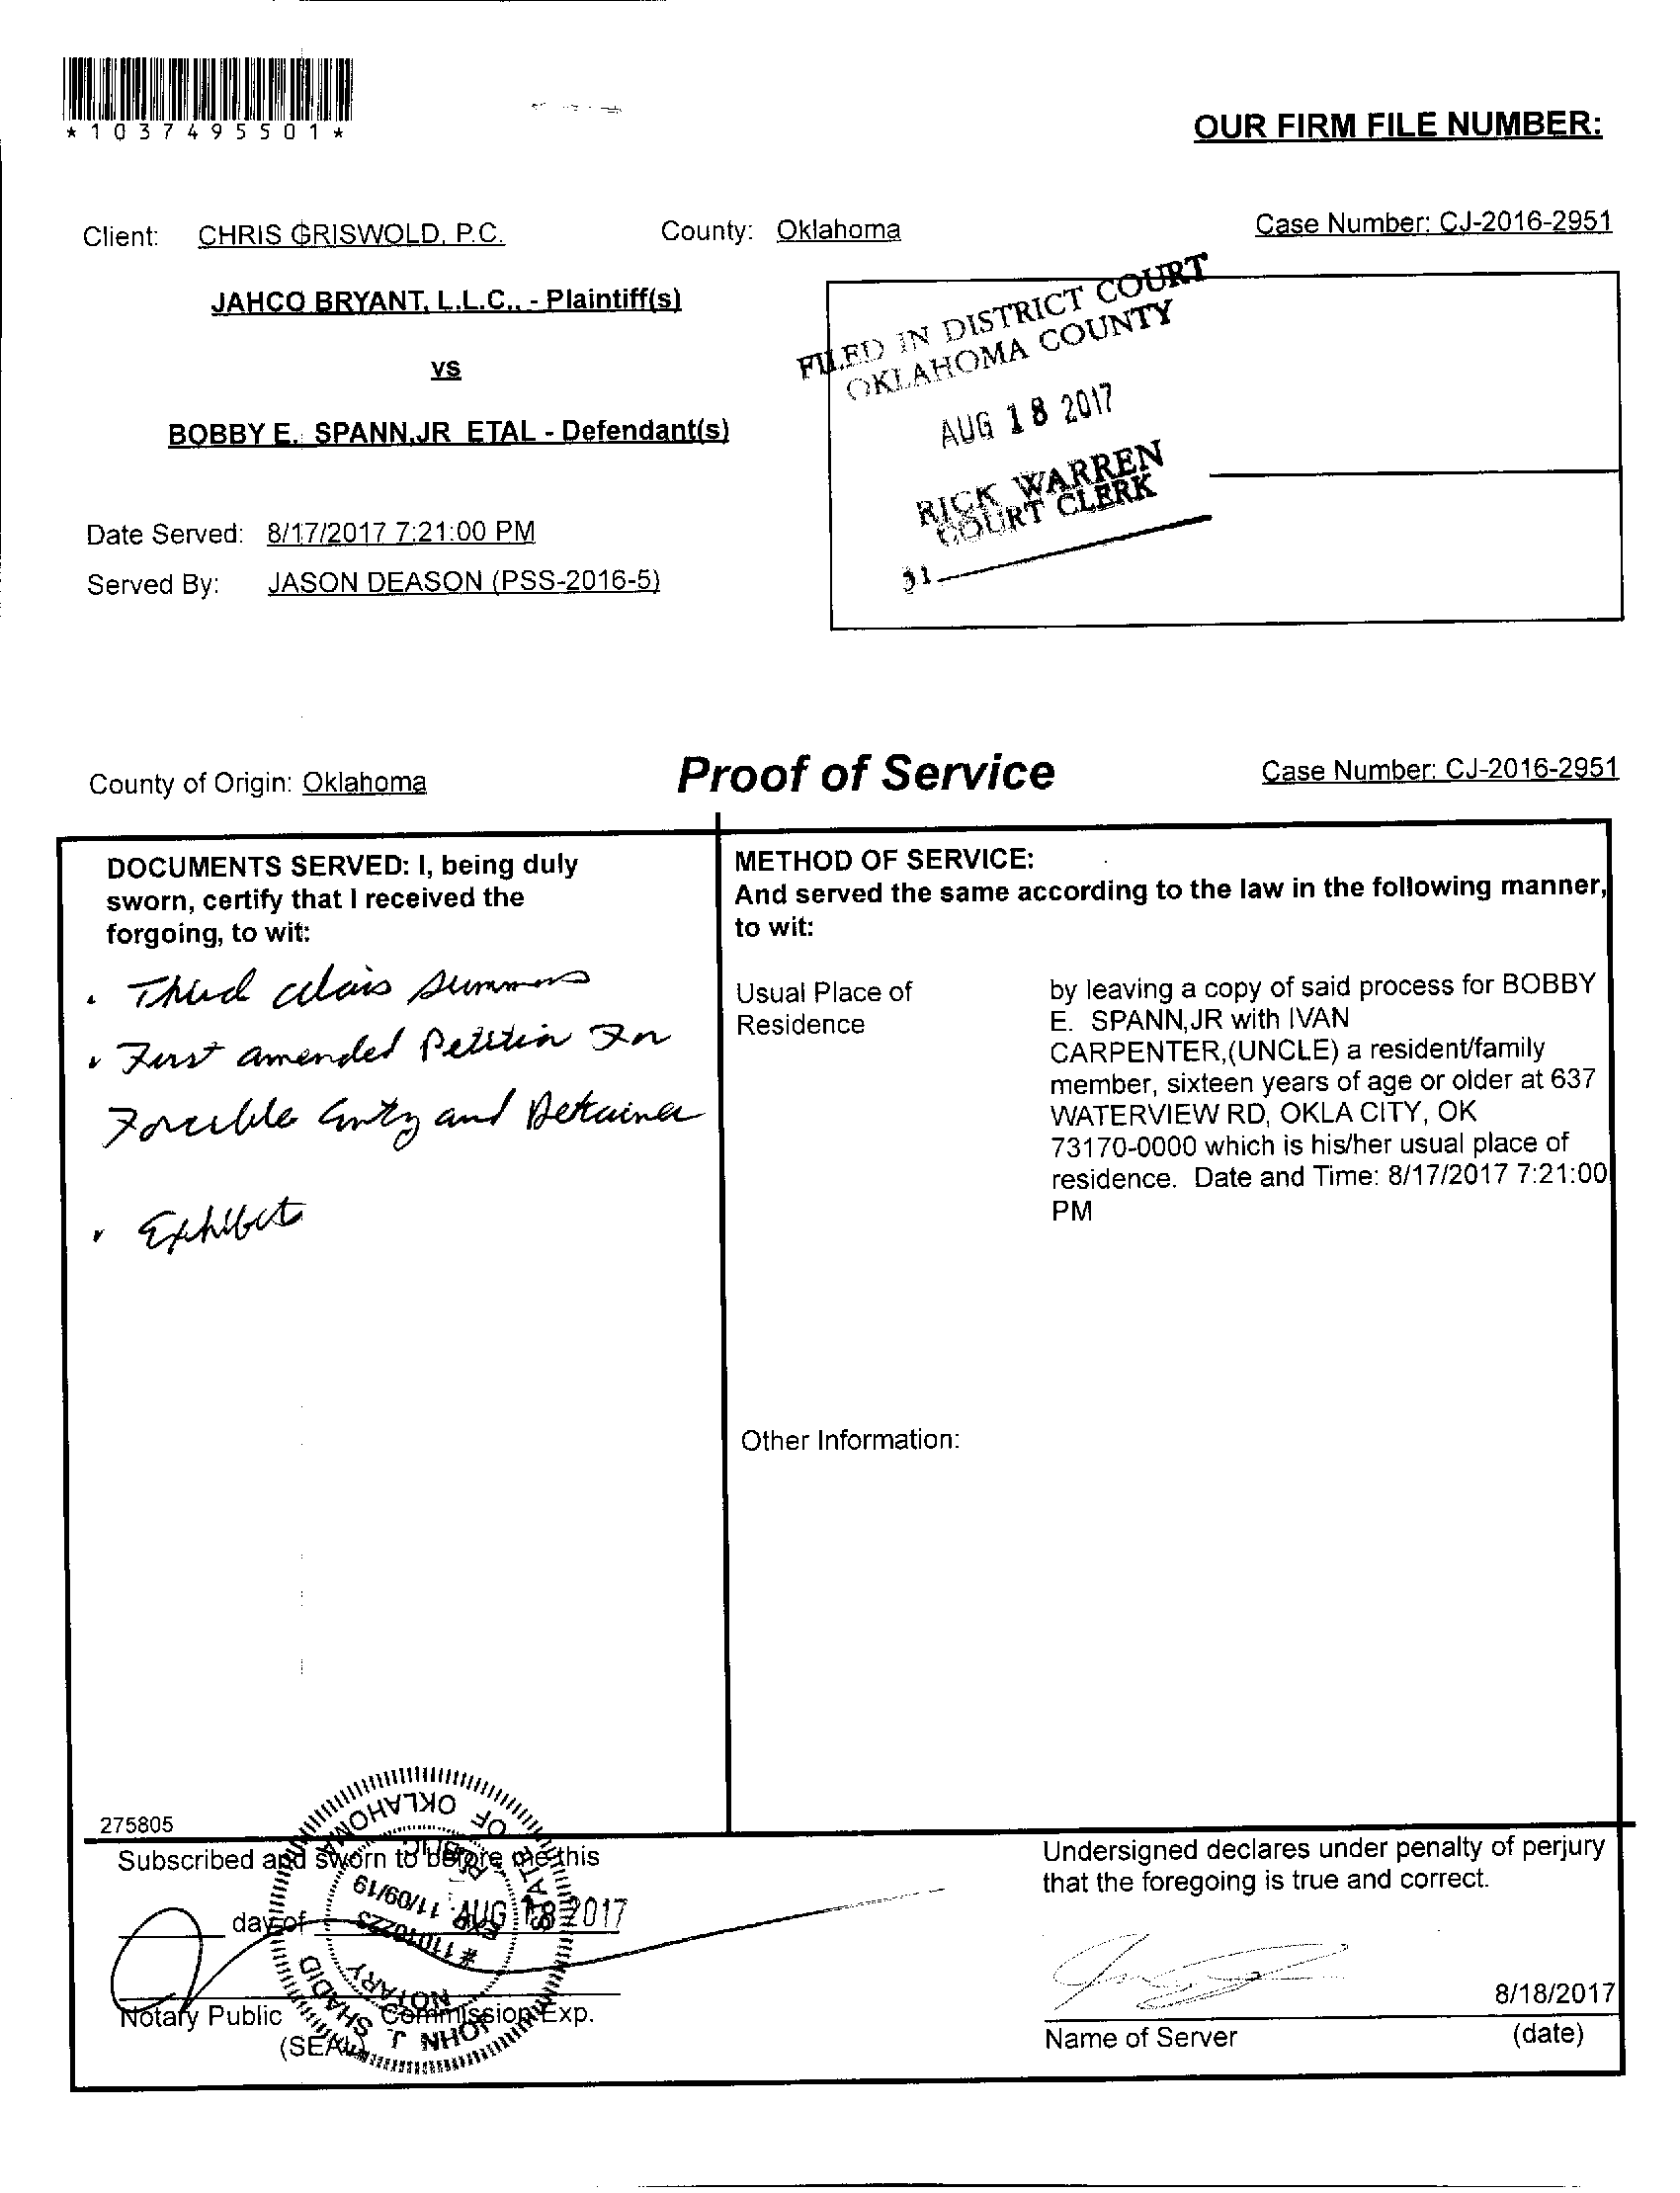 *1037495501*
OUR FIRM FILE NUMBER:
Client: CHRIS GRISWOLD, P.C. County: Oklahoma Case Number: CJ-2016-2951
JAHCO BRYANT, L.L.C., - Plaintiff(s)
vs
BOBBY E. SPANN,JR ETAL - Defendant(s)
FILED IN DISTRICT COURT
OKLAHOMA COUNTY
AUG 18 2017
RICK WARREN
COURT CLERK
31
Date Served: 8/17/2017 7:21:00 PM
Served By: JASON DEASON (PSS-2016-5)
County of Origin: Oklahoma Proof of Service Case Number: CJ-2016-2951
DOCUMENTS SERVED: I, being duly
sworn, certify that I received the
forgoing, to wit:
Third alias summons
First amended Petition For
Forcible Entry and Detainer
Exhibits
METHOD OF SERVICE:
And served the same according to the law in the following manner,
to wit:
Usual Place of
Residence
by leaving a copy of said process for BOBBY
E. SPANN,JR with IVAN
CARPENTER,(UNCLE) a resident/family
member, sixteen years of age or older at 637
WATERVIEW RD, OKLA CITY, OK
73170-0000 which is his/her usual place of
residence. Date and Time: 8/17/2017 7:21:00
PM
Other Information:
275805
Subscribed and sworn to before me this
day of AUG 18 2017
Notary Public Commission Exp.
(SEAL)
JOHN J. SHADID
NOTARY PUBLIC
STATE OF OKLAHOMA
# 11010223
EXP. 11/09/19
Undersigned declares under penalty of perjury
that the foregoing is true and correct.
8/18/2017
Name of Server (date)